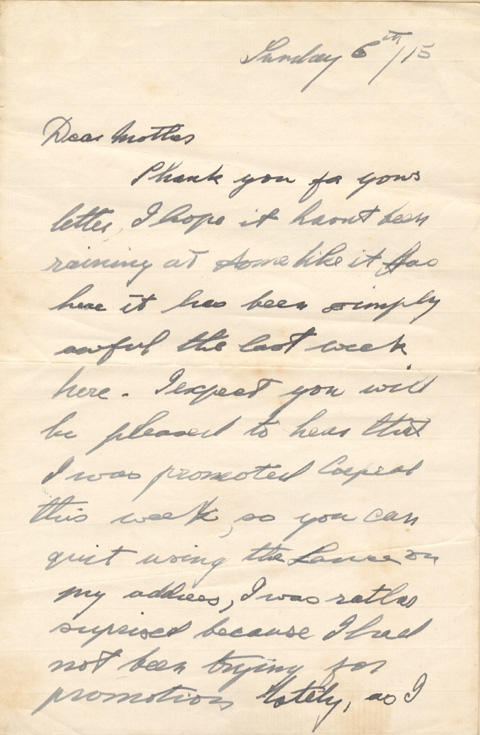 Sunday 6th/15
Dear Mother
Thank you for your
letter, I hope it hasnt been
raining at home like it has
here it has been simply
awful the last week
here. I expect you will
be pleased to hear that
I was promoted Corporal
this week, so you can
quit using the Lance on
my address, I was rather
surprised because I had
not been trying for
promotion lately, as I